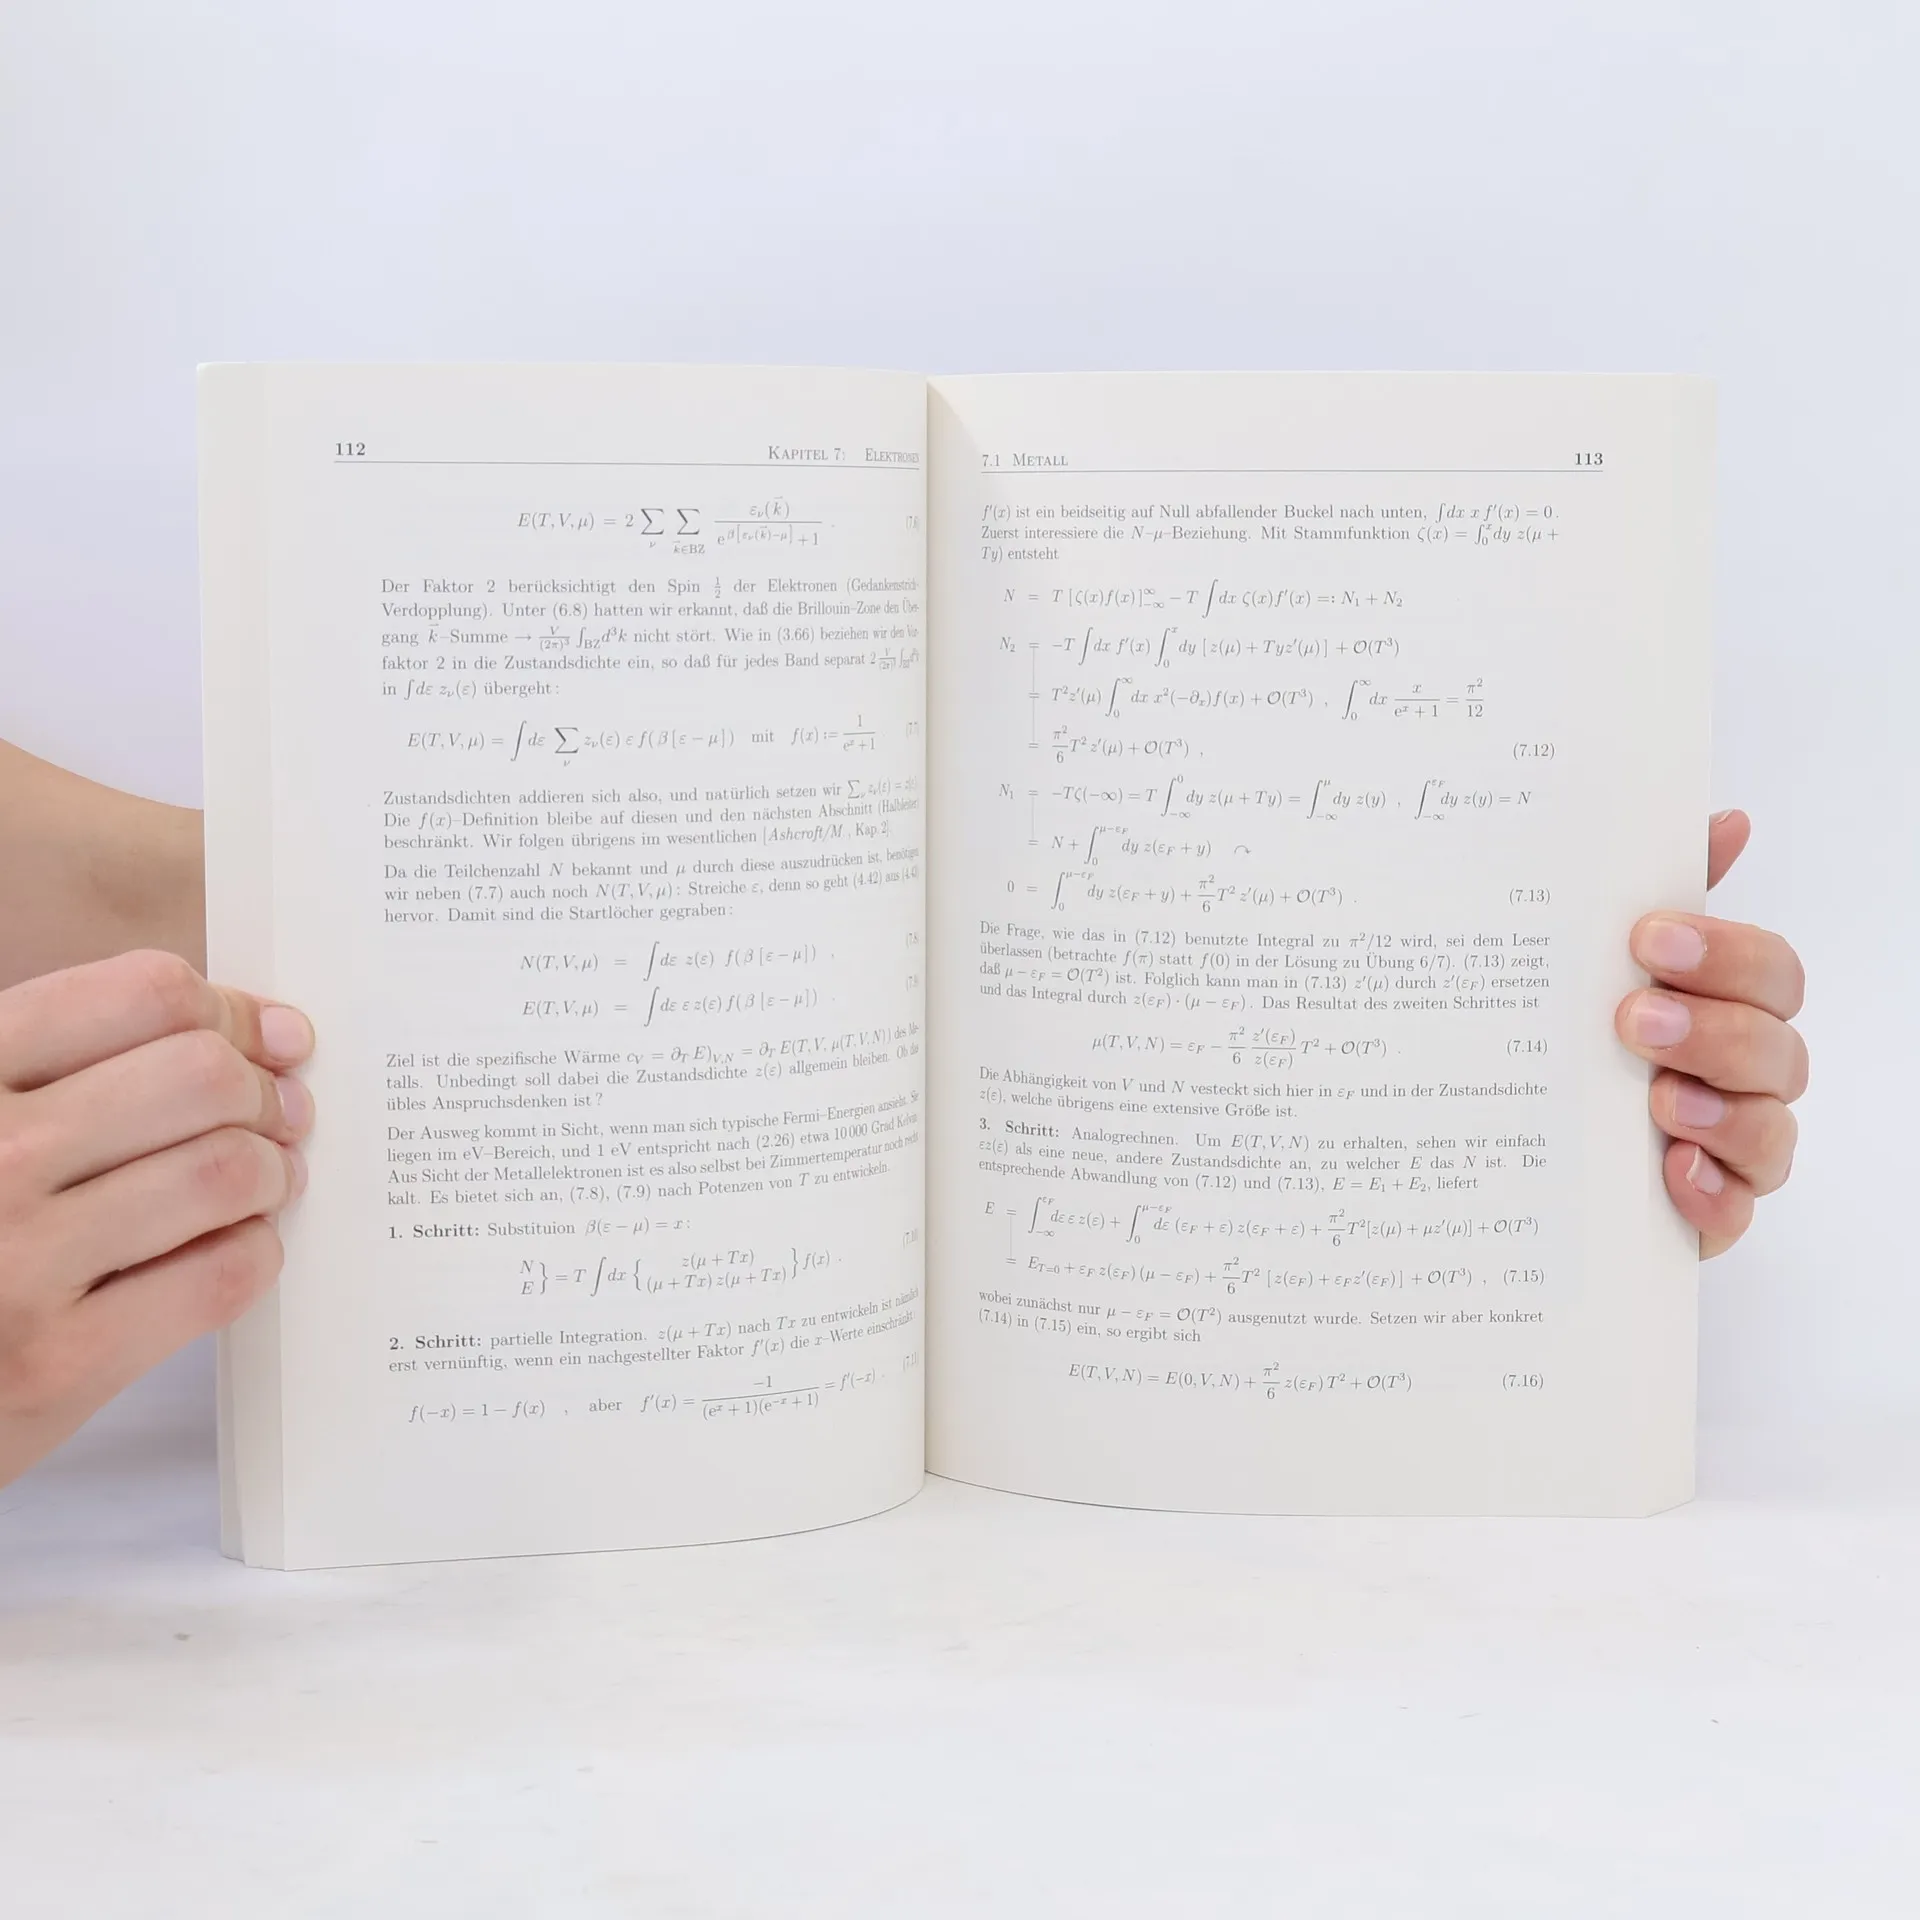 112 KAPITEL 7: ELEKTRONEN
E(T, V, μ) = 2 ∑_ν ∑_{k⃗∈BZ} ε_ν(k⃗) / (e^{β[ε_ν(k⃗)−μ]} + 1) . (7.6)
Der Faktor 2 berücksichtigt den Spin 1/2 der Elektronen (Gedankenstrich-
Verdopplung). Unter (6.8) hatten wir erkannt, daß die Brillouin–Zone den Über-
gang k⃗–Summe → V/(2π)³ ∫_BZ d³k nicht stört. Wie in (3.66) beziehen wir den Vor-
faktor 2 in die Zustandsdichte ein, so daß für jedes Band separat 2 V/(2π)³ ∫_BZ d³k
in ∫dε z_ν(ε) übergeht :
E(T, V, μ) = ∫dε ∑_ν z_ν(ε) ε f( β [ ε − μ ] ) mit f(x) := 1/(e^x + 1) (7.7)
Zustandsdichten addieren sich also, und natürlich setzen wir ∑_ν z_ν(ε) = z(ε).
Die f(x)–Definition bleibe auf diesen und den nächsten Abschnitt (Halbleiter)
beschränkt. Wir folgen übrigens im wesentlichen [Ashcroft/M , Kap. 2].
Da die Teilchenzahl N bekannt und μ durch diese auszudrücken ist, benötigen
wir neben (7.7) auch noch N(T, V, μ) : Streiche ε, denn so geht (4.42) aus (4.43)
hervor. Damit sind die Startlöcher gegraben :
N(T, V, μ) = ∫dε z(ε) f( β [ ε − μ ] ) , (7.8)
E(T, V, μ) = ∫dε ε z(ε) f( β [ ε − μ ] ) . (7.9)
Ziel ist die spezifische Wärme c_V = ∂_T E)_{V,N} = ∂_T E(T, V, μ(T, V, N) ) des Me-
talls. Unbedingt soll dabei die Zustandsdichte z(ε) allgemein bleiben. Ob das
übles Anspruchsdenken ist ?
Der Ausweg kommt in Sicht, wenn man sich typische Fermi–Energien ansieht. Sie
liegen im eV–Bereich, und 1 eV entspricht nach (2.26) etwa 10 000 Grad Kelvin.
Aus Sicht der Metallelektronen ist es also selbst bei Zimmertemperatur noch recht
kalt. Es bietet sich an, (7.8), (7.9) nach Potenzen von T zu entwickeln.
1. Schritt: Substituion β(ε − μ) = x :
N E } = T ∫dx { z(μ + Tx) (μ + Tx) z(μ + Tx) } f(x) . (7.10)
2. Schritt: partielle Integration. z(μ + Tx) nach Tx zu entwickeln ist nämlich
erst vernünftig, wenn ein nachgestellter Faktor f′(x) die x–Werte einschränkt:
f(−x) = 1 − f(x) , aber f′(x) = −1 / ((e^x + 1)(e^{−x} + 1)) = f′(−x) . (7.11)
7.1 METALL 113
f′(x) ist ein beidseitig auf Null abfallender Buckel nach unten, ∫dx x f′(x) = 0 .
Zuerst interessiere die N–μ–Beziehung. Mit Stammfunktion ζ(x) = ∫_0^x dy z(μ +
Ty) entsteht
N = T [ ζ(x)f(x) ]_{−∞}^{∞} − T ∫dx ζ(x)f′(x) =: N₁ + N₂
N₂ = −T ∫dx f′(x) ∫_0^x dy [ z(μ) + Tyz′(μ) ] + O(T³)
= T²z′(μ) ∫_0^∞ dx x²(−∂_x)f(x) + O(T³) , ∫_0^∞ dx x/(e^x + 1) = π²/12
= π²/6 T² z′(μ) + O(T³) , (7.12)
N₁ = −Tζ(−∞) = T ∫_{−∞}^0 dy z(μ + Ty) = ∫_{−∞}^μ dy z(y) , ∫_{−∞}^{ε_F} dy z(y) = N
= N + ∫_0^{μ−ε_F} dy z(ε_F + y) ↷
0 = ∫_0^{μ−ε_F} dy z(ε_F + y) + π²/6 T² z′(μ) + O(T³) . (7.13)
Die Frage, wie das in (7.12) benutzte Integral zu π²/12 wird, sei dem Leser
überlassen (betrachte f(π) statt f(0) in der Lösung zu Übung 6/7). (7.13) zeigt,
daß μ − ε_F = O(T²) ist. Folglich kann man in (7.13) z′(μ) durch z′(ε_F) ersetzen
und das Integral durch z(ε_F) · (μ − ε_F) . Das Resultat des zweiten Schrittes ist
μ(T, V, N) = ε_F − π²/6 z′(ε_F)/z(ε_F) T² + O(T³) . (7.14)
Die Abhängigkeit von V und N versteckt sich hier in ε_F und in der Zustandsdichte
z(ε), welche übrigens eine extensive Größe ist.
3. Schritt: Analogrechnen. Um E(T, V, N) zu erhalten, sehen wir einfach
εz(ε) als eine neue, andere Zustandsdichte an, zu welcher E das N ist. Die
entsprechende Abwandlung von (7.12) und (7.13), E = E₁ + E₂, liefert
E = ∫_{−∞}^{ε_F} dε ε z(ε) + ∫_0^{μ−ε_F} dε (ε_F + ε) z(ε_F + ε) + π²/6 T² [z(μ) + μz′(μ)] + O(T³)
= E_{T=0} + ε_F z(ε_F) (μ − ε_F) + π²/6 T² [ z(ε_F) + ε_F z′(ε_F) ] + O(T³) , (7.15)
wobei zunächst nur μ − ε_F = O(T²) ausgenutzt wurde. Setzen wir aber konkret
(7.14) in (7.15) ein, so ergibt sich
E(T, V, N) = E(0, V, N) + π²/6 z(ε_F) T² + O(T³) (7.16)